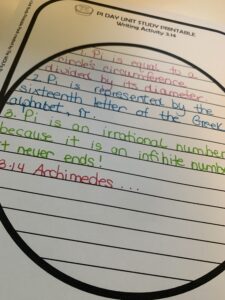 PI DAY UNIT STUDY PRINTABLE
Writing Activity 3.14
1. Pi is equal to a
circle's circumference
divided by its diameter.
2. Pi is represented by the
sixteenth letter of the Greek
alphabet, π.
3. Pi is an irrational number
because it is an infinite number
it never ends!
3.14 Archimedes ...